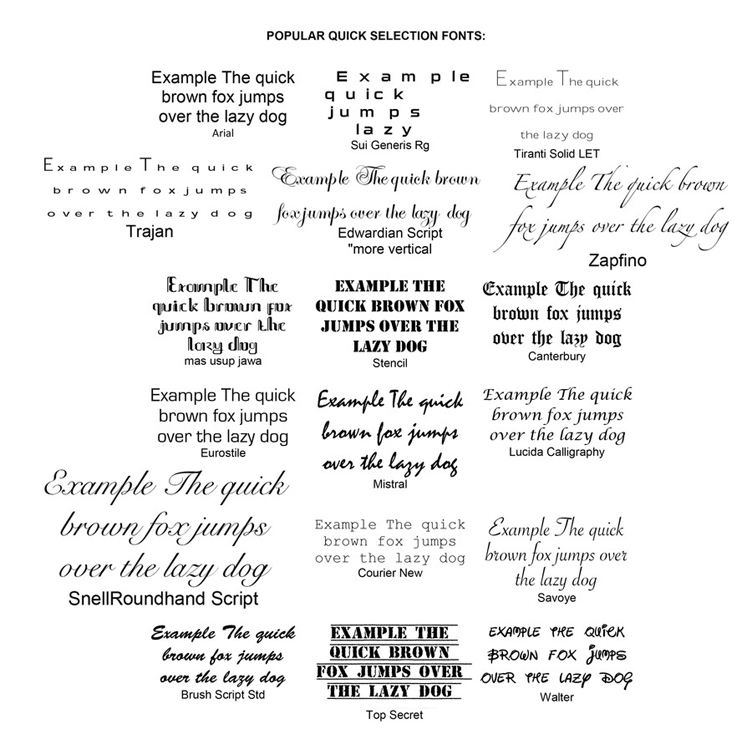 POPULAR QUICK SELECTION FONTS:
Example The quick
brown fox jumps
over the lazy dog
Arial
Example
quick
jumps
lazy
Sui Generis Rg
Example The quick
brown fox jumps over
the lazy dog
Tiranti Solid LET
Example The quick
brown fox jumps
over the lazy dog
Trajan
Example The quick brown
fox jumps over the lazy dog
Edwardian Script
"more vertical
Example The quick brown
fox jumps over the lazy dog
Zapfino
Example The
quick brown fox
jumps over the
lazy dog
mas usup jawa
EXAMPLE THE
QUICK BROWN FOX
JUMPS OVER THE
LAZY DOG
Stencil
Example The quick
brown fox jumps
over the lazy dog
Canterbury
Example The quick
brown fox jumps
over the lazy dog
Eurostile
Example The quick
brown fox jumps
over the lazy dog
Mistral
Example The quick
brown fox jumps
over the lazy dog
Lucida Calligraphy
Example The quick
brown fox jumps
over the lazy dog
SnellRoundhand Script
Example The quick
brown fox jumps
over the lazy dog
Courier New
Example The quick
brown fox jumps over
the lazy dog
Savoye
Example The quick
brown fox jumps
over the lazy dog
Brush Script Std
EXAMPLE THE
QUICK BROWN
FOX JUMPS OVER
THE LAZY DOG
Top Secret
EXAMPLE THE QUICK
BROWN FOX JUMPS
OVER THE LAZY DOG
Walter